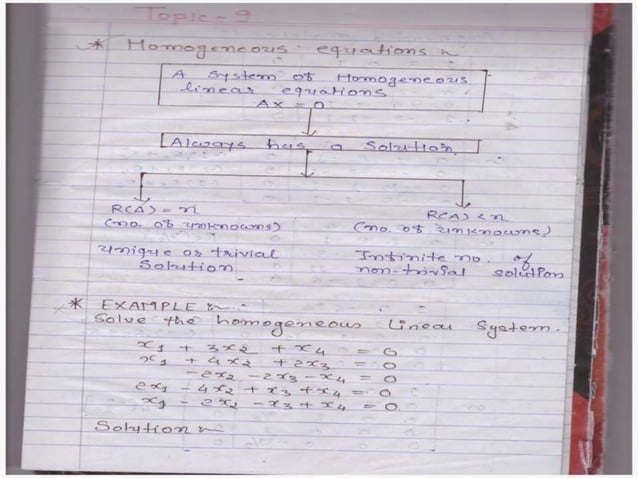 Topic - 9
* Homogeneous equations :~
A system of Homogeneous
linear equations
AX = 0
Always has a Solution.
R(A) = n
(no. of unknowns)
unique or trivial
Solution
R(A) < n
(no. of unknowns)
Infinite no. of
non-trivial solution
* EXAMPLE :~
Solve the homogeneous Linear System.
x1 + 3x2 + x4 = 0
x1 + 4x2 + 2x3 = 0
-2x2 - 2x3 - x4 = 0
2x1 - 4x2 + x3 + x4 = 0
x1 - 2x2 - x3 + x4 = 0.
Solution :~